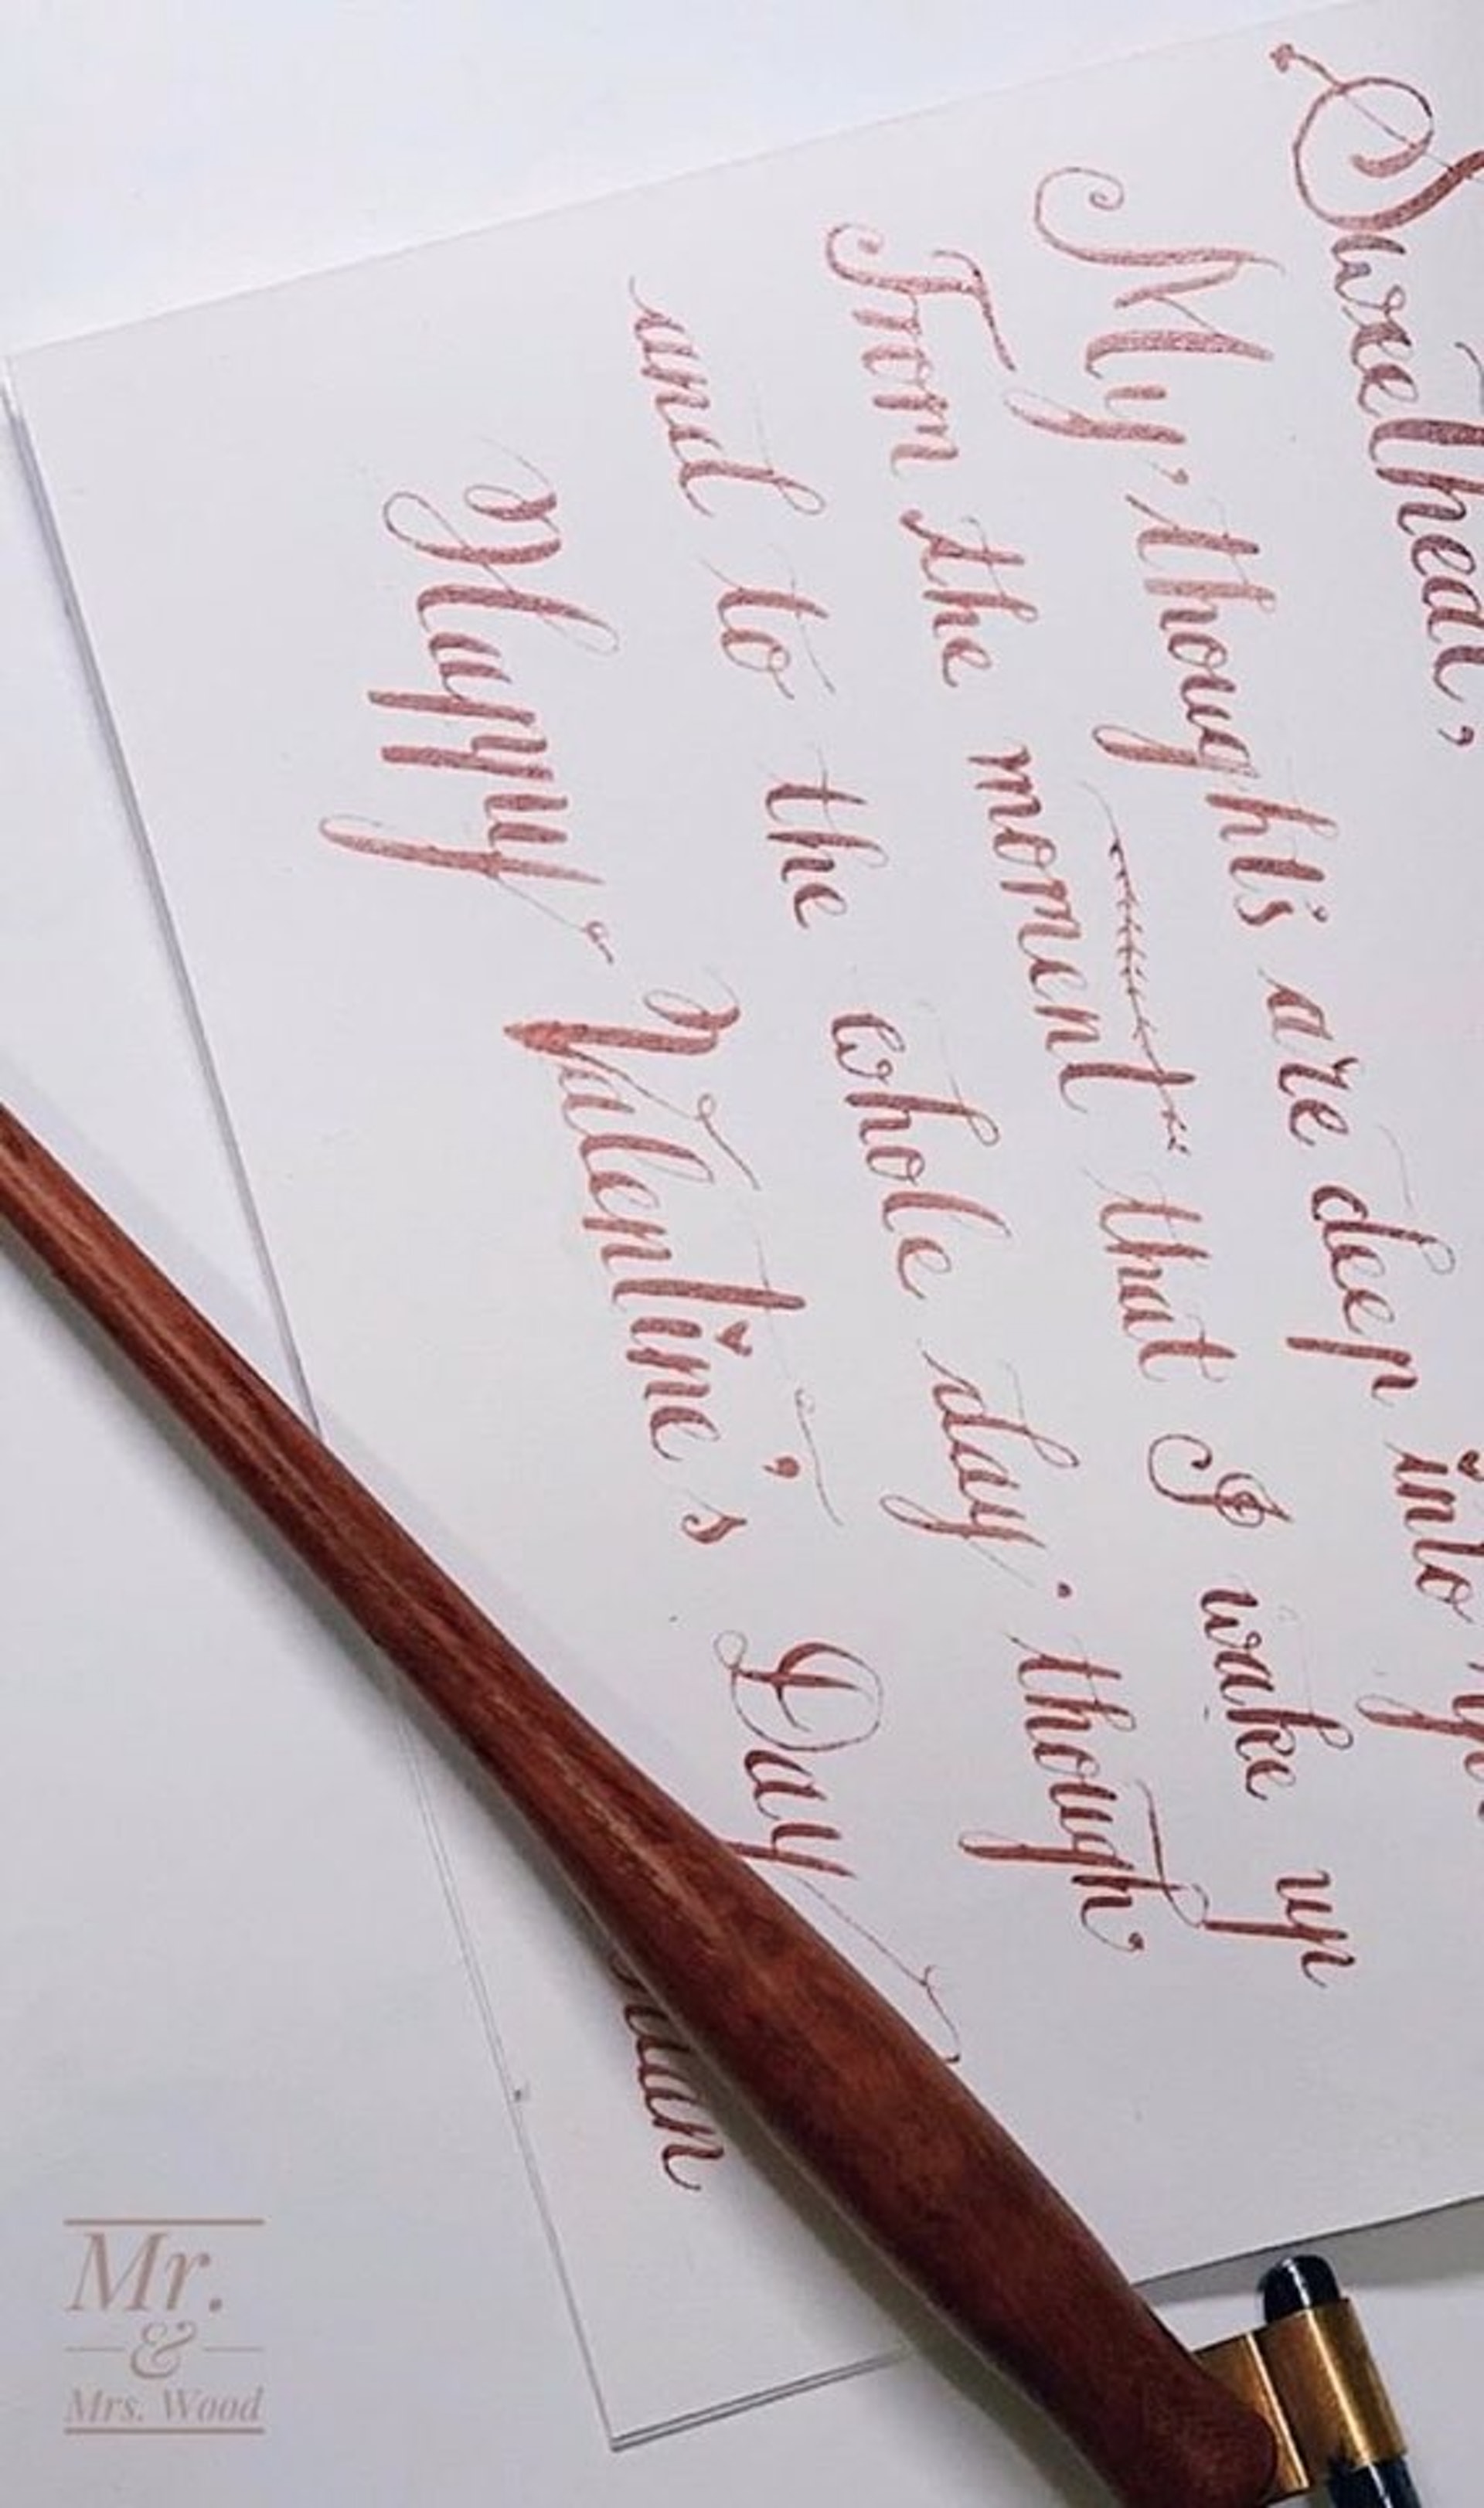 Sweetheart,
My thoughts are deep into
From the moment that I wake up
and to the whole day though.
Happy Valentine's Day
Mr.
&
Mrs. Wood